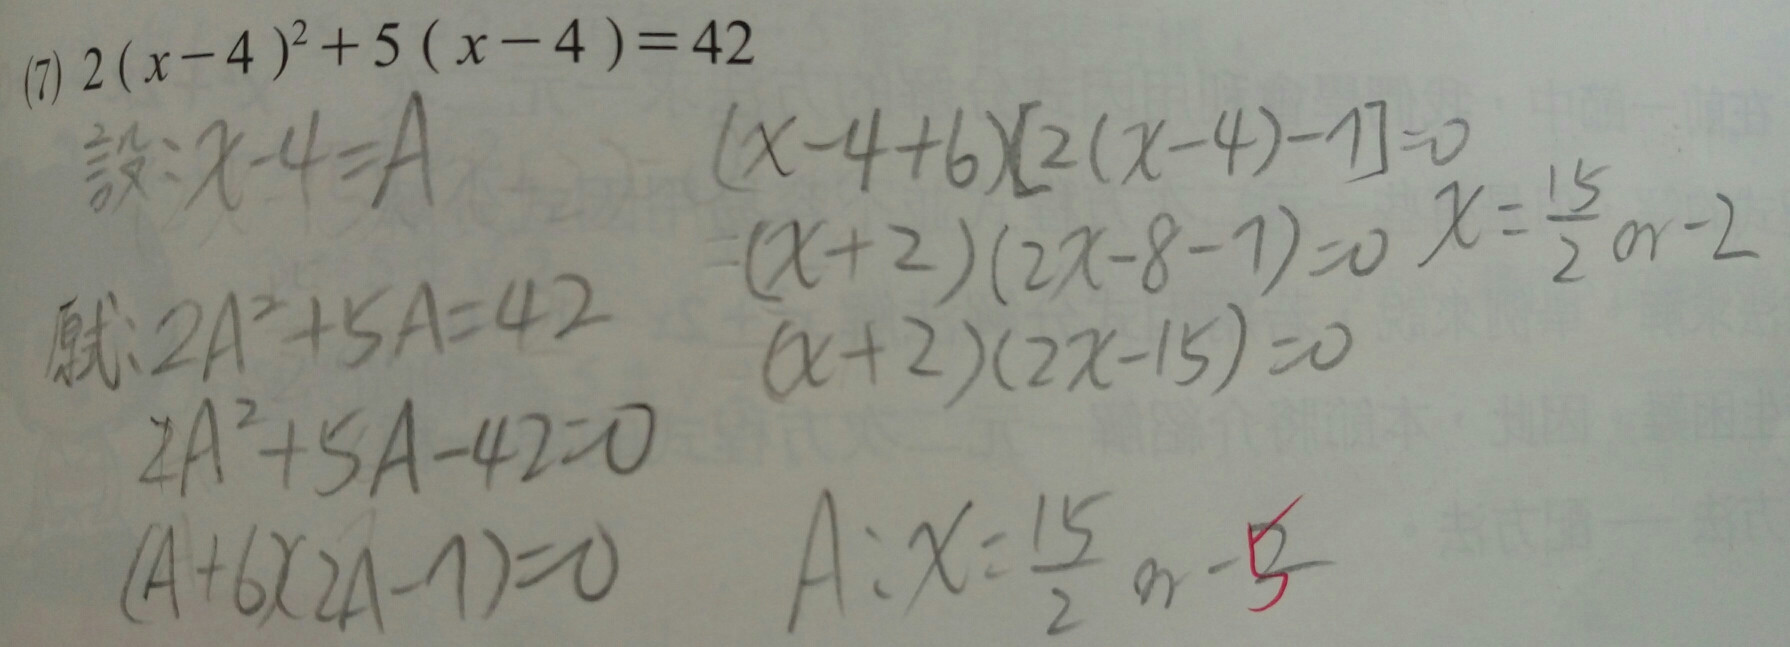 (7) 2(x-4)²+5(x-4)=42
設:x-4=A
原式:2A²+5A=42
2A²+5A-42=0
(A+6)(2A-7)=0
(x-4+6)[2(x-4)-7]=0
=(x+2)(2x-8-7)=0
(x+2)(2x-15)=0
x=15/2 or -2
A:x=15/2 or -